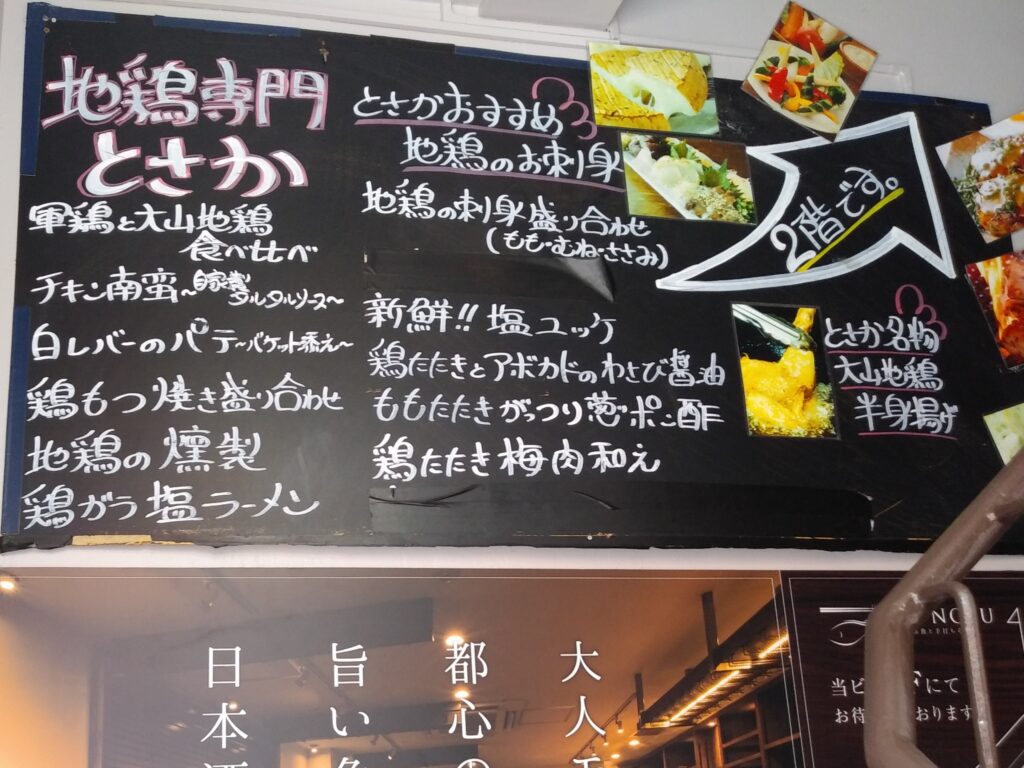 地鶏専門
とさか
軍鶏と大山地鶏
食べ比べ
チキン南蛮～自家製タルタルソース～
白レバーのパテ～バケット添え～
鶏もつ焼き盛り合わせ
地鶏の燻製
鶏ガラ塩ラーメン
とさかおすすめ
地鶏のお刺身
地鶏の刺身盛り合わせ
(もも・むね・ささみ)
新鮮!!塩ユッケ
鶏たたきとアボカドのわさび醤油
ももたたきがっつり葱ポン酢
鶏たたき梅肉和え
2階です。
とさか名物
大山地鶏
半身揚げ
大人
都心の
旨い
日本酒
当ビ
にて
お待
おります